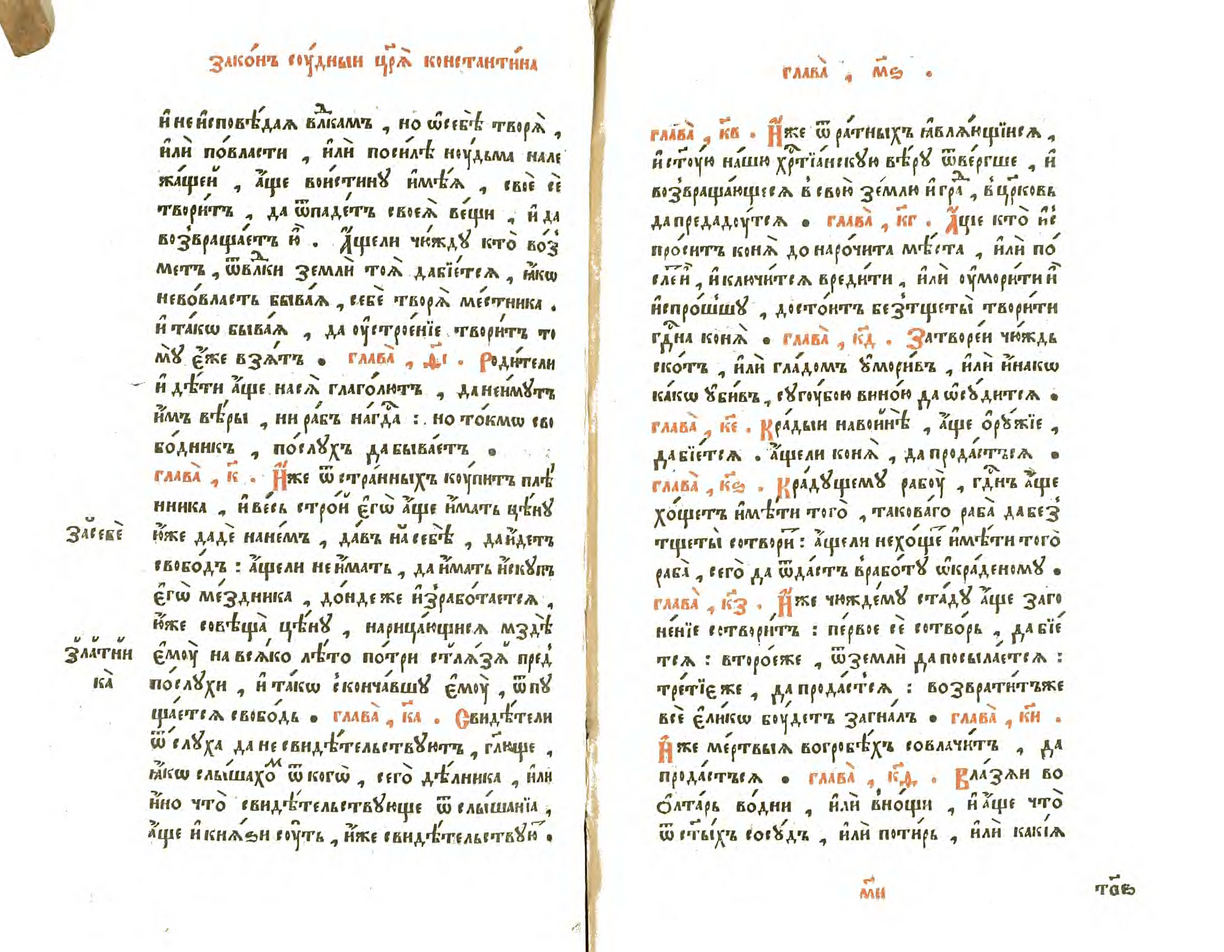 Зако́нъ сꙋ́дныи цр҃ѧ̀ константи́на
и҆ неи҆сповѣ́даѧ влⷣкамъ , но ѡ҆себѣ̀ творѧ̀ ,
и҆лѝ по́власти , и҆лѝ поси́лѣ ноу́дьма нале
жа́щей , а҆́ще вои́стинꙋ и҆мѣ́ѧ , своѐ сѐ
твори́тъ , да ѿпаде́тъ своеѧ̀ ве́щи , и҆ да
возвраща́етъ ю҆̀ . А҆́щели чю́ждꙋ кто̀ во́з
метъ , ѿ влⷣки землѝ тоѧ̀ дабїе́тсѧ , ꙗ҆́кѡ
нево́власть быва́ѧ , себѐ творѧ̀ ме́стника .
и҆ та́кѡ быва́ѧ , да оу҆строе́нїе твори́тъ то
мꙋ̀ є҆́же взѧ́тъ . глава̀ , ѳ҃і . Роди́тели
и҆ дѣ́ти а҆́ще насѧ̀ глаго́лютъ , да неи́мꙋтъ
и҆́мъ вѣ́ры , ни ра́бъ нагдⷭ҇а : но то́кмѡ сво
бо́дникъ , по́слꙋхъ да быва́етъ .
глава̀ , к҃ . И҆́же ѿ стра́нныхъ кꙋ́питъ плѣ́
нника , и҆ ве́сь стро́й є҆гѡ̀ а҆́ще и҆́мать цѣ́нꙋ
за́себѐ
ю҆́же дадѐ на не́мъ , да́въ на́ себѣ̀ , да и҆́детъ
свобо́дъ : а҆́щели не и҆́мать , да и҆́мать и҆скꙋ́пь
є҆гѡ̀ ме́здника , до́нде же и҆зрабо́таетсѧ ,
ю҆́же совѣща̀ цѣ́нꙋ , нарица́ющисѧ мздѣ̀
зла́тни
ка̀
є҆моу̀ на всѧ́ко лѣ́то по́три стлѧ́зѧ̀ пред̾
по́слꙋхи , и҆ та́кѡ сконча́вшꙋ є҆моу̀ , ѿпꙋ
ща́етсѧ свобо́дь . глава̀ , к҃а . Свидѣ́тели
ѿ слꙋ́ха да не свидѣ́тельствꙋютъ , гл҃юще ,
ꙗ҆́кѡ слы́шахоⷨ ѿ когѡ̀ , сего̀ дѣ́лника , или
и҆́но что̀ свидѣ́тельствꙋюще ѿ слы́шанїа ,
а҆́ще и҆ кнѧ́ѕи сꙋ́ть , и҆́же свидѣ́тельствꙋюⷮ .
глава̀ , м҃ѕ .
глава̀ , к҃в . И҆́же ѿ ра́тныхъ ꙗ҆влѧ́ющїисѧ ,
и҆ ст҃ꙋ́ю на́шю хрⷭ҇тїа́нскꙋю вѣ́рꙋ ѿве́ргше , и҆
возвраща́ющесѧ в̾ свою̀ зе́млю и҆ граⷣ , в̾ цр҃ковь
да предадꙋ́тсѧ . глава̀ , к҃г . А҆́ще кто̀ и҆с
про́ситъ конѧ̀ до наро́чита мѣ́ста , и҆лѝ по́
сле́й , и҆ ключи́тсѧ вреди́ти , и҆лѝ оу҆мори́ти и҆
и҆спро́шшꙋ , досто́итъ без̾тщеты̀ твори́ти
гдⷭ҇на конѧ̀ . глава̀ , к҃д . Затво́рей чю́ждь
ско́тъ , и҆лѝ гла́домъ ᲂу҆мори́въ , и҆лѝ и҆́накѡ
ка́кѡ ᲂу҆би́въ , сꙋгꙋ́бою вино́ю да ѡ҆сꙋ́дитсѧ .
глава̀ , к҃е . Кра́дыи на во́йнѣ̀ , а҆́ще ѻ҆рꙋ́жїе ,
да бїе́тсѧ . а҆́щели конѧ̀ , да прода́стъсѧ .
глава̀ , к҃ѕ . Кра́дꙋщемꙋ рабоу̀ , гдⷭ҇нъ а҆́ще
хо́щетъ и҆мѣ́ти того̀ , такова́го раба̀ да без̾
тщеты̀ сотвори̑ : а҆́щели нехо́ще и҆мѣ́ти того̀
раба̀ , сего̀ да ѿда́стъ в̾рабо́тꙋ ѡ҆кра́деномꙋ .
глава̀ , к҃з . И҆́же чю́ждемꙋ ста́дꙋ а҆́ще заго
не́нїе сотвори́тъ : пе́рвое сѐ сотво́рь , да бїе́
тсѧ : второ́еже , ѿ землѝ да посыла́етсѧ :
тре́тїеже , да прода́стсѧ : возврати́тъже
всѐ є҆ли́кѡ бꙋ́детъ загна́лъ . глава̀ , к҃и .
И҆́же ме́ртвыѧ во гробѣ́хъ совлачи́тъ , да
прода́стъсѧ . глава̀ , к҃ѳ . Вла́зѧи во
ѻ҆лта́рь во́дни , и҆лѝ в̾но́щи , и҆ а҆́ще что̀
ѿ ст҃ы́хъ сосꙋ́дъ , и҆лѝ поти́рь , и҆лѝ какі́ѧ
м҃и